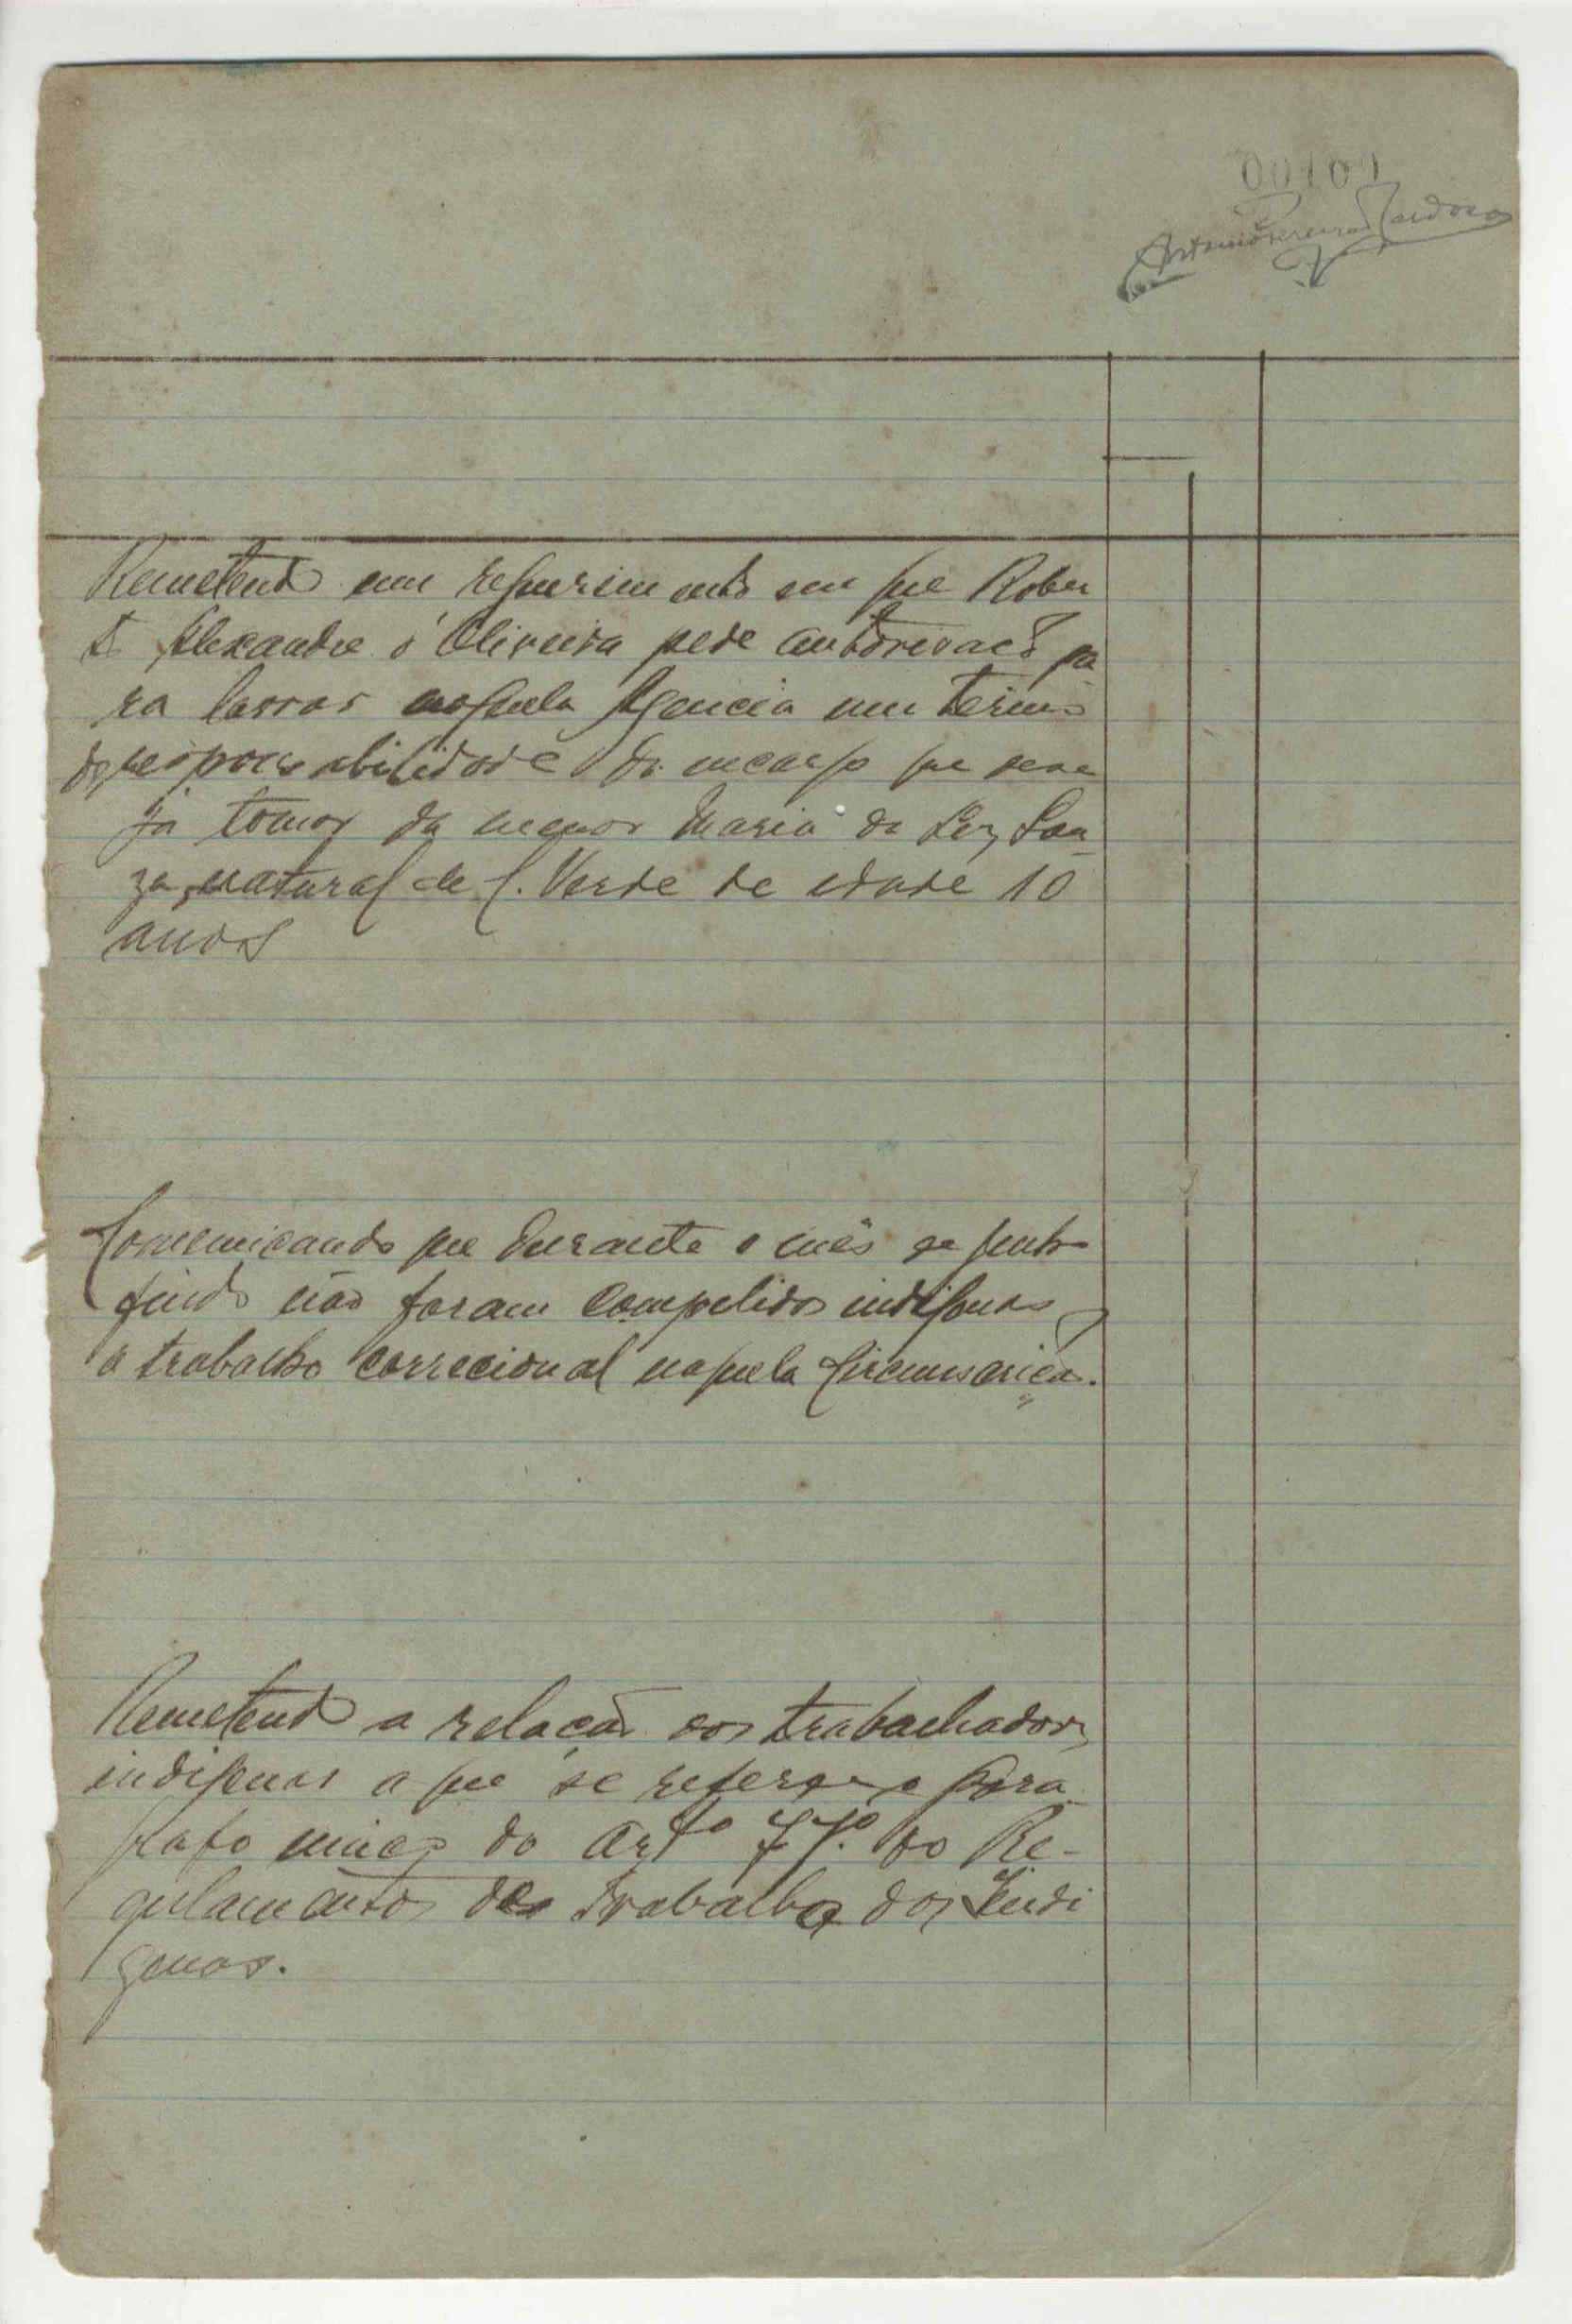 00101
Antonio Pereira Cardoso
Remetendo um requerimento em que Rober
to Alexandre d'Oliveira pede autorização pa
ra lavrar naquela Agencia um termo
de responsabilidade do encargo que dese
ja tomar da menor Maria da Luz Sou
za, natural de C. Verde de edade 10
anos
Comunicando que durante o mês
findo não foram compelidos indigenas
a trabalho correcional naquela Circunscrição.
Remetendo a relação dos trabalhadores
indigenas a que se refere o Para
grafo unico do artº 77º do Re-
gulamento do Trabalho dos Indi
genas.